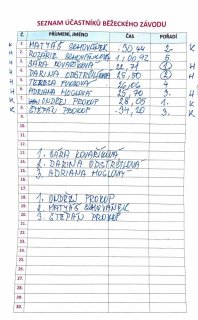 SEZNAM ÚČASTNÍKŮ BĚŽECKÉHO ZÁVODU
Č. PŘÍJMENÍ, JMÉNO ČAS POŘADÍ
K 1. MATYÁŠ 30,44 2. K
H 2. ROZÁRIE 1,00,92 5.
H 3. SÁRA KOVAŘÍKOVÁ 22,71 1 H
H 4. DARINA ODSTRČILOVÁ 25,50 2 H
H 5. TEREZA 26,06 4. H
H 6. ADRIANA MOGLOVÁ 25,70 3. H
K 7. ONDŘEJ PROKOP 28,05 1. K
K 8. ŠTĚPÁN PROKOP 34,20 3. K
9.
10.
11.
12.
13. 1. SÁRA KOVAŘÍKOVÁ
14. 2. DARINA ODSTRČILOVÁ
15. 3. ADRIANA MOGLOVÁ
16.
17.
18. 1. ONDŘEJ PROKOP
19. 2. MATYÁŠ
20. 3. ŠTĚPÁN PROKOP
21.
22.
23.
24.
25.
26.
27.
28.
29.
30.